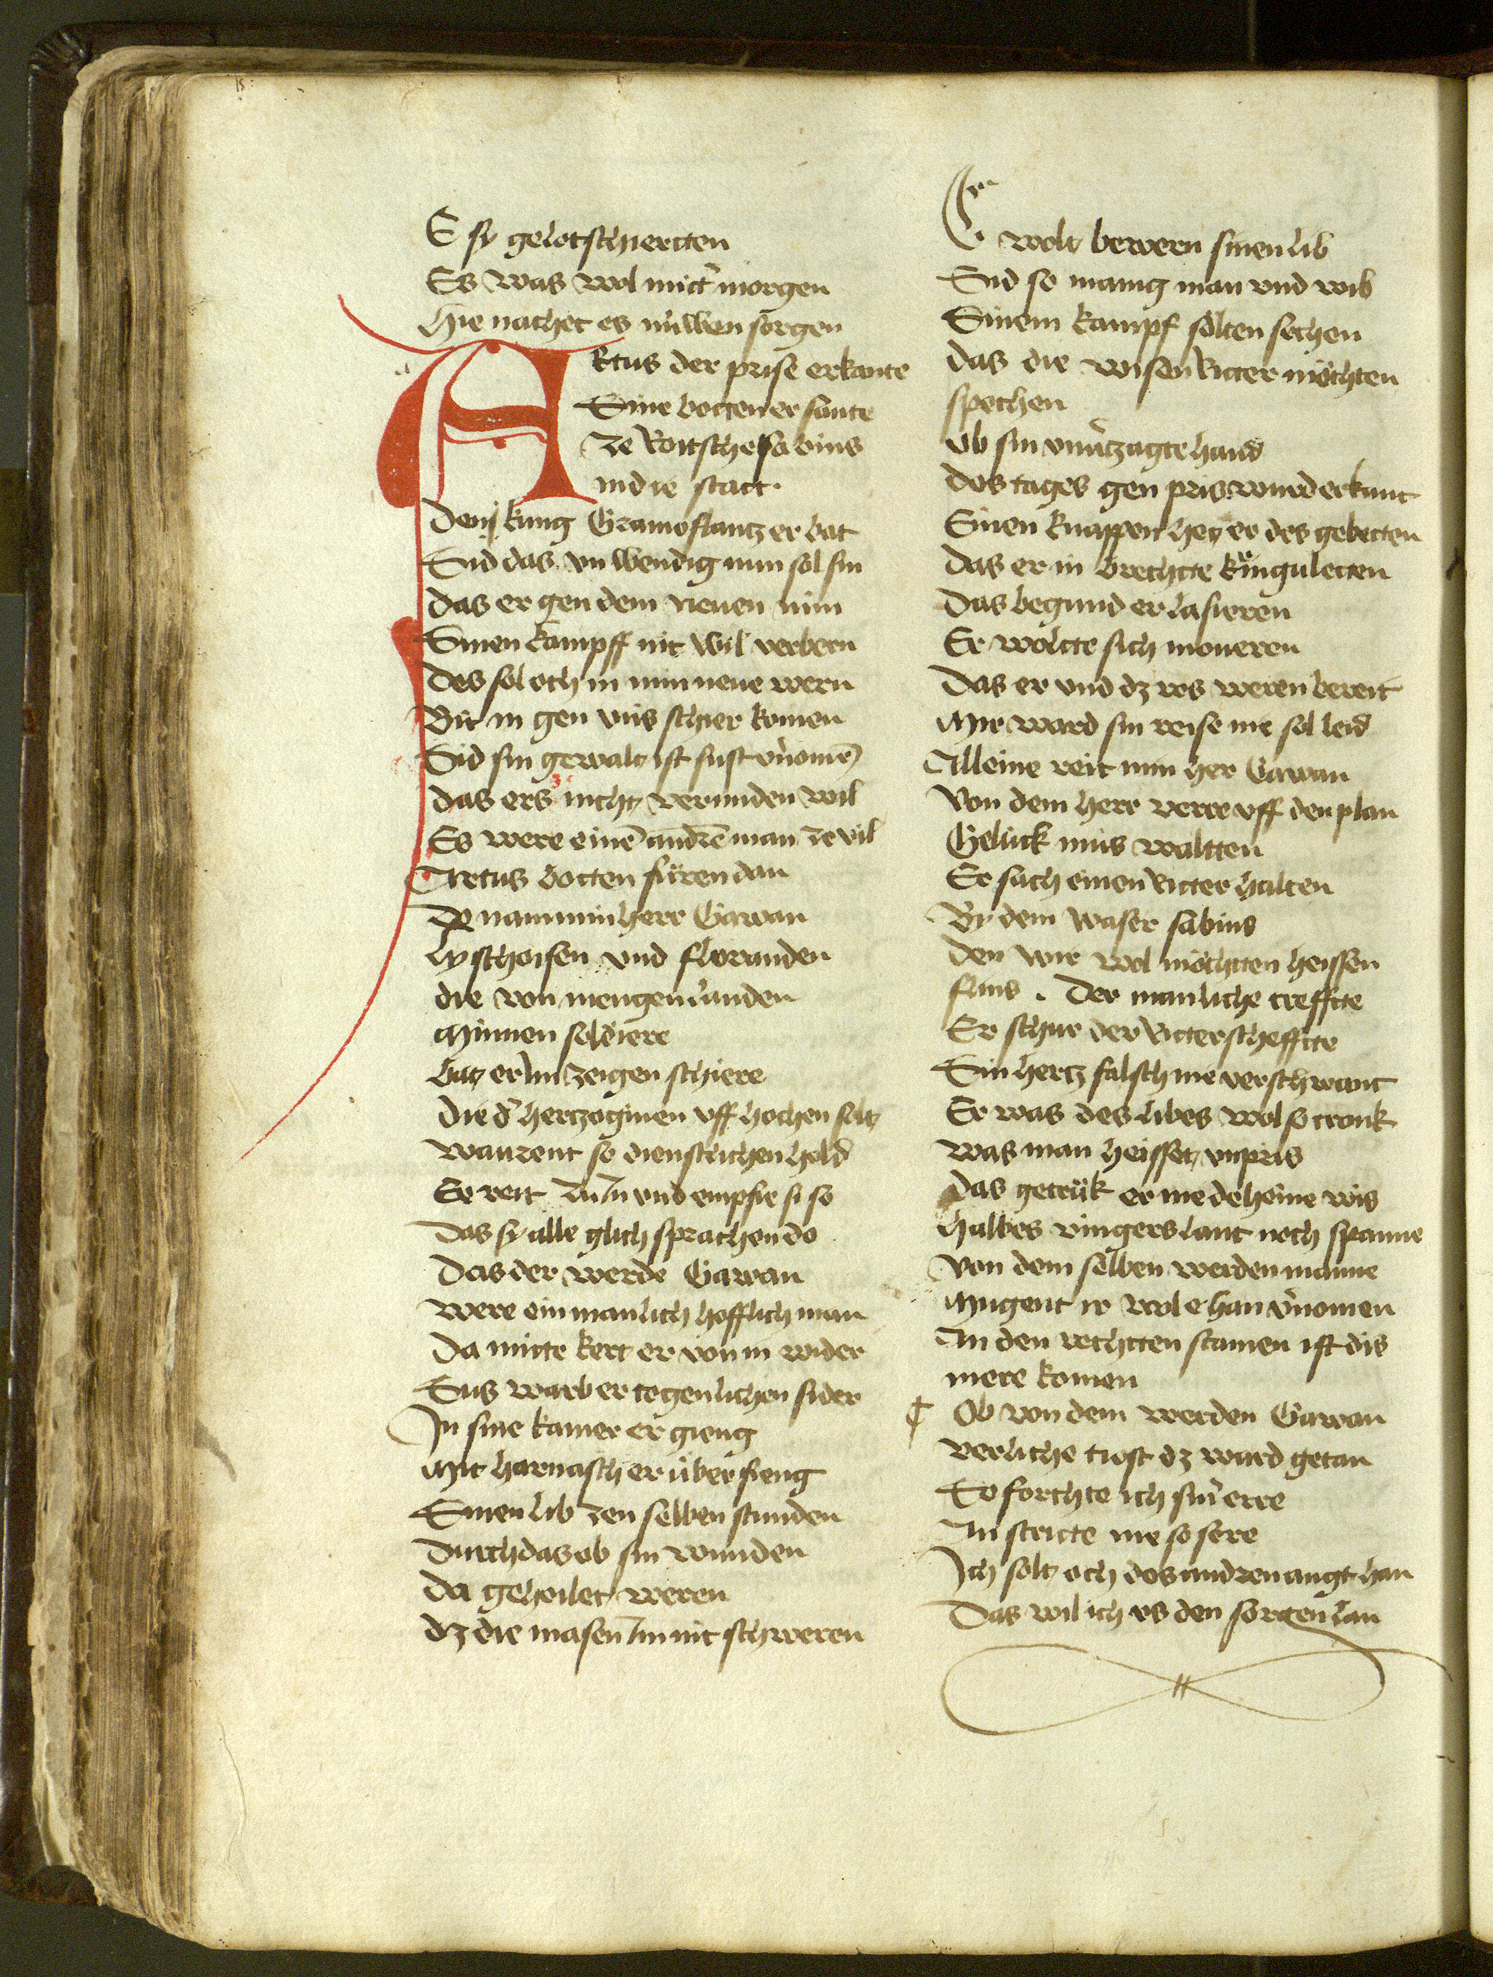 E sy gelotschiertten
Es was wol mitt morgen
Hie nachet es núwen sorgen
ARtus der prise erkante
Sine botten er sante
ze Roitsche sabins
in die statt.
Dem kúng Gramoflantz er bat
Sid das vn wendig nun sol sin
das er gen dem neuen min
Sinen kampff nit wil verbern
des sol och in min neue wern
Bit in gen vns schier komen
Sid sin gewalt ist sust v̾nomē
das ers nicht vermiden wil
Es were einē andrē man ze vil
Artus botten fůren dan
Do nam min herr Gawan
Lyschoisen vnd floranden
die von mengen landen
Minnen soldiere
bat er im zeigen schiere
die d̾ hertzoginen vff hochen solt
warent so dienstlichen hold
Er reit zu in vnd empfie si so
das sy alle glich sprachen do
Das der werde Gawan
were ein manlich hofflich man
Da mitte kert er von in wider
Sus warb er togenlichen sider
In sine kamer er gieng
Mit harnasch er über fieng
Sinen lib zen selben stunden
Durch das ob sin wunden
da geheilet weren
dz die masen im nit schweren
Er wolt bewern sinen lib
Sid so manig man vnd wib
Sinem kampf solten sechen
das die wisen Ritter möchten
spechen
Ob sin vnu̾tzagte hand
des tages gen pris wurd erkant
Sinen knappen het er des gebetten
das er in brechtte kúnguletten
Das begund er lasieren
Er woltte sich moueren
Das er vnd dz ros weren bereit
Mir ward sin reise nie sol leid
Alleine reit nun her Gawan
Von dem herr verre vff den plan
Gelück müs waltten
Er sach einen Ritter halten
By dem waser sabins
den wir wol möchtten heissen
flins. Der manliche treffte
Er schur der Ritterscheffte
Sin hertz falsch nie verschwant
Er was des libes wol so crank
was man heisset vnpris
das getrük er nie deheine wis
halbes vingers lant noch spanne
Von dem selben werden manne
Mugent ir wol e han v̾nomen
An den rechtten stamen ist dis
mere komen
¶ Ob von dem werden Gawan
verliche tiost dz ward getan
So forchte ich sin̾ erre
An stritte nie so sere
Ich solt och des andren angt han
Das wil ich vs den sorgen lan